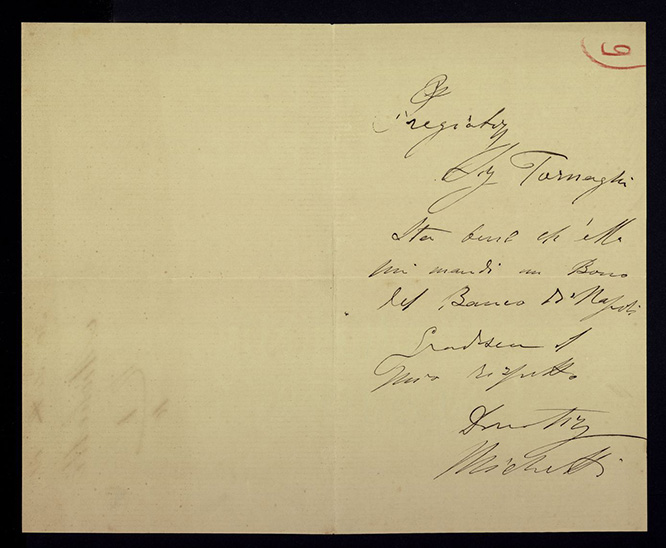 9
Pregiatm
Sig Tornaghi
Sta bene ch'Ella
mi mandi un Bono
del Banco di Napoli
Gradisca il
mio rispetto
Devotm
Michetti